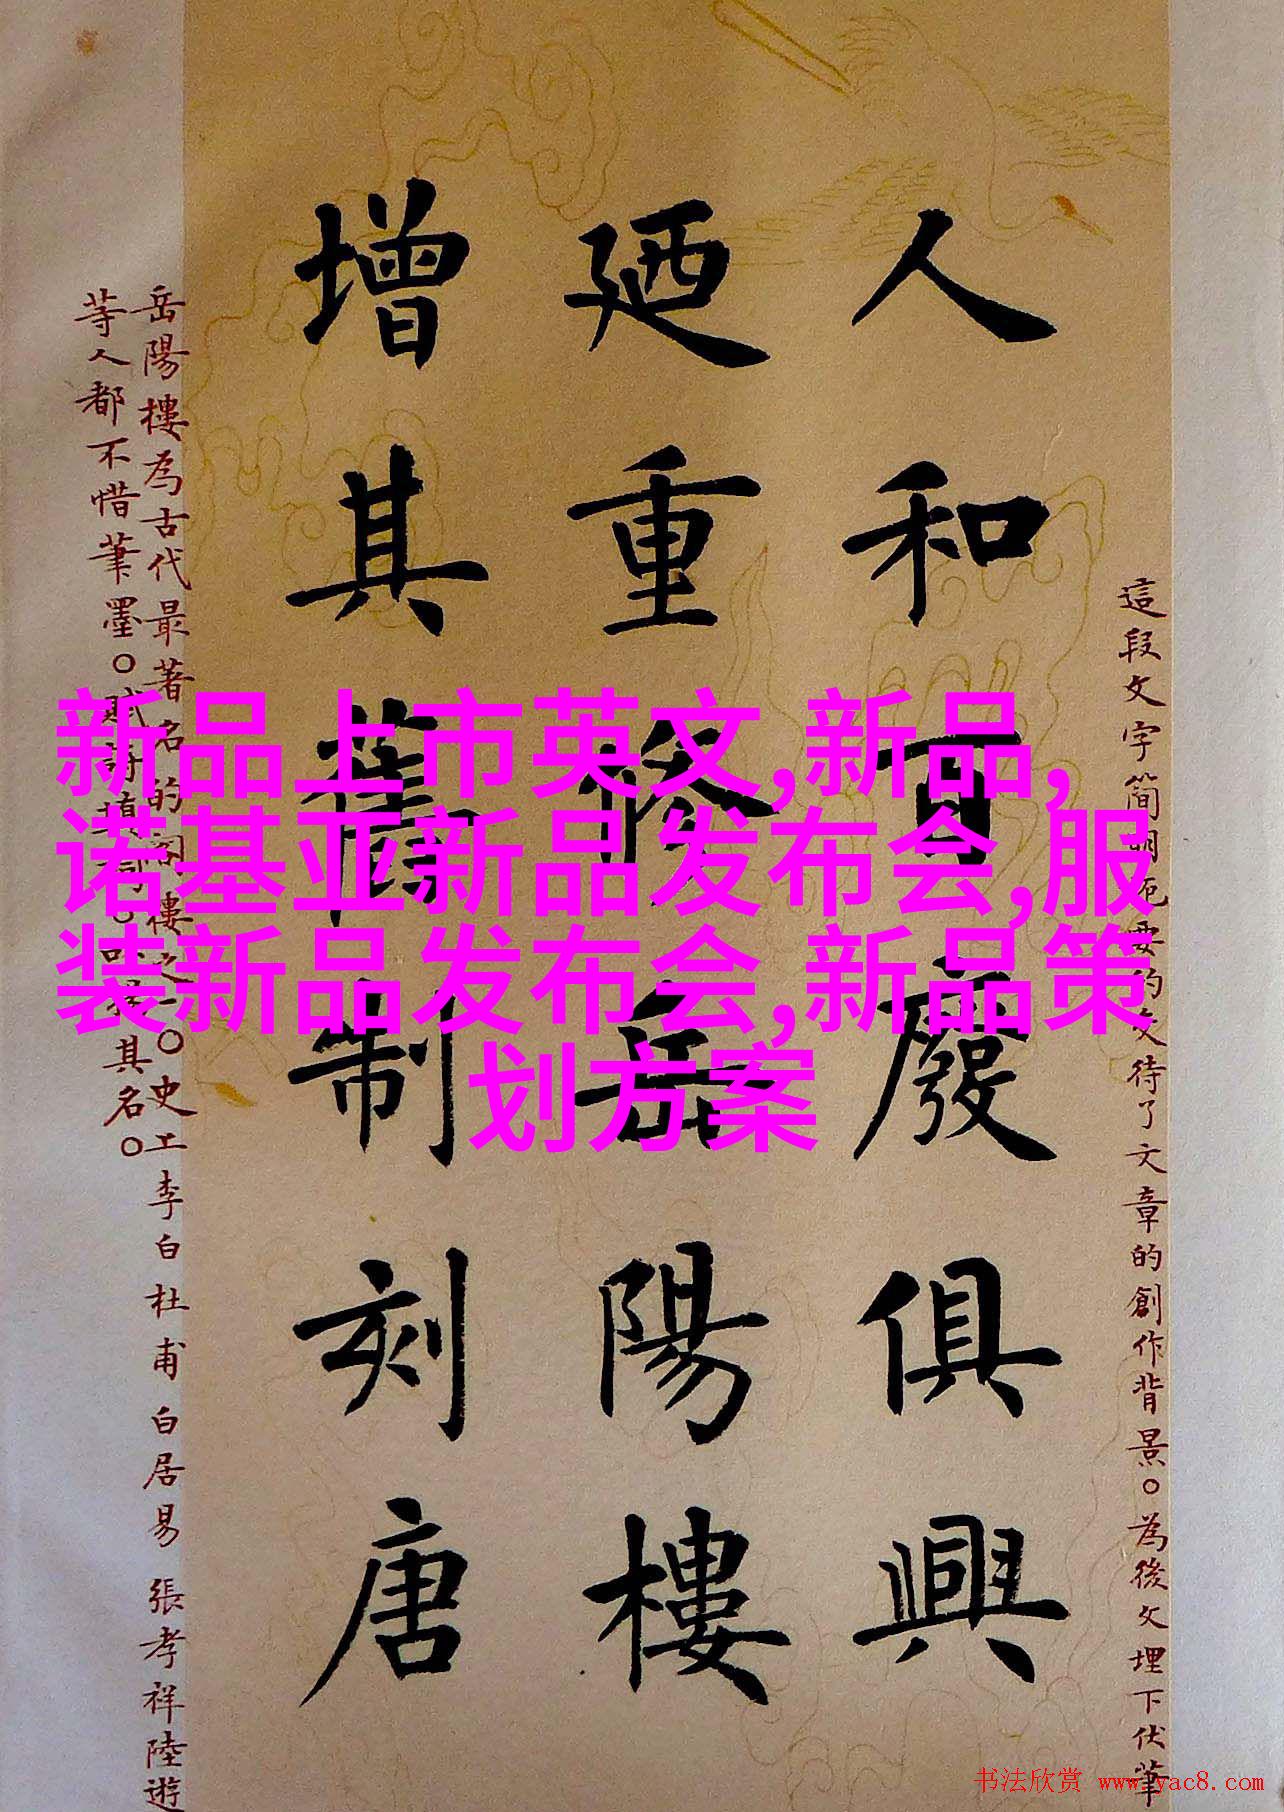 這段文字簡明扼要的交待了文章的創作背景。為後文埋下伏筆
人和百廢俱興
廼重修岳陽樓
增其舊制刻唐
岳陽樓為古代最著名的閣樓之一。史上李白 杜甫 白居易 張孝祥 陸遊
等人都不惜筆墨。賦詩填詞。其名。
新品上市英文,新品,
诺基亚新品发布会,服
装新品发布会,新品策
划方案
书法欣赏 www.yac8.com